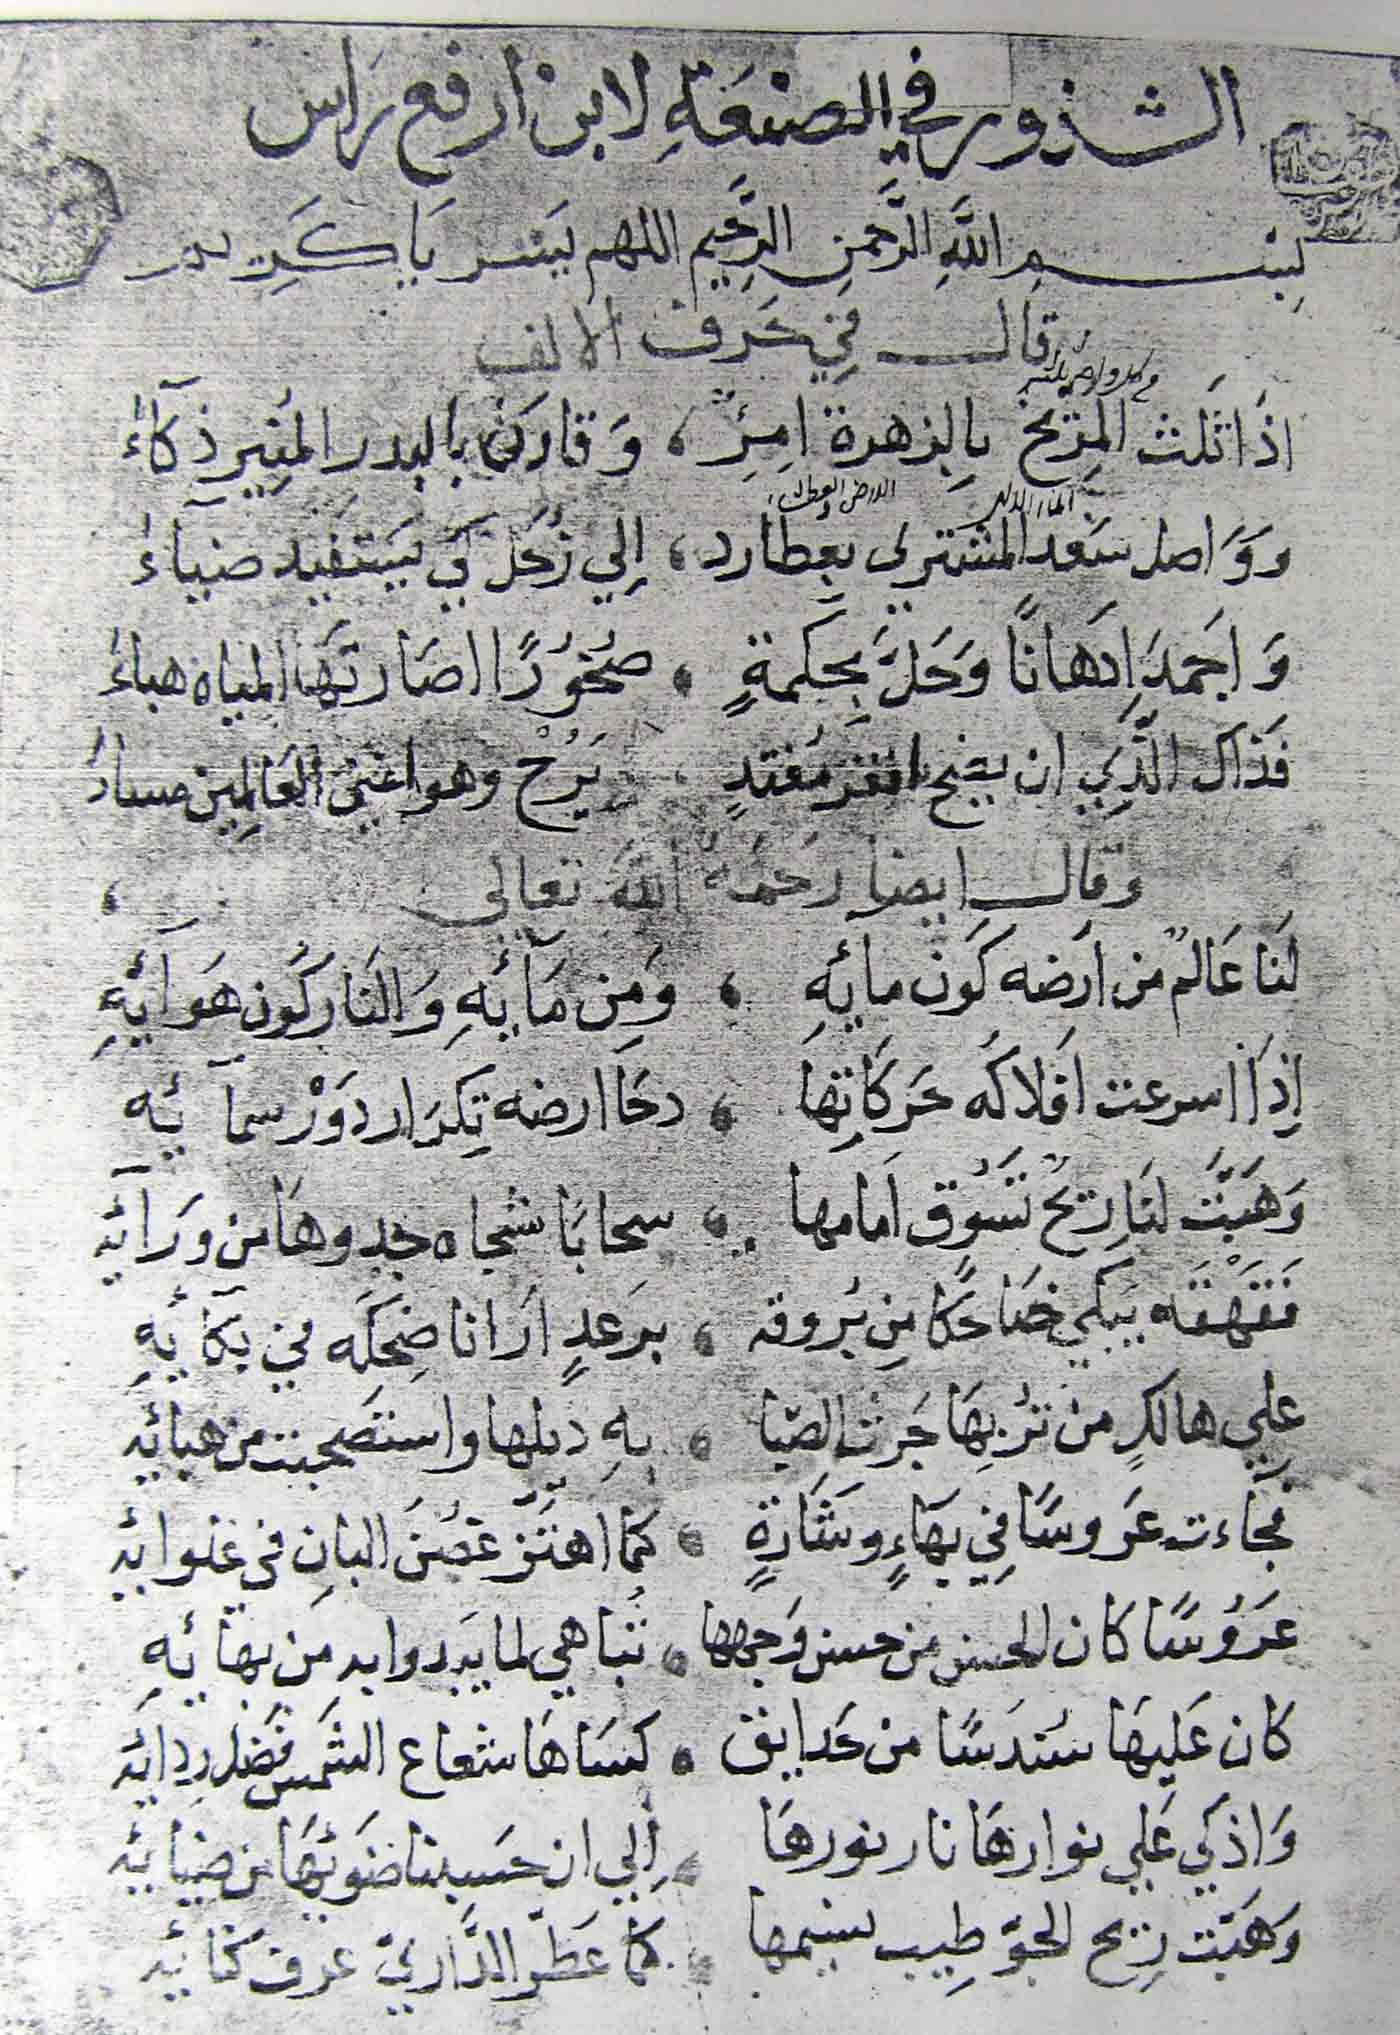 الشذور في الصنعة لابن ارفع راس
بسم الله الرحمن الرحيم اللهم يسر يا كريم
قال في حرف الالف
اذا ثلث المريخ بالزهرة امرئ ، وقارن بالبدر المنير ذكاء
وواصل سعد المشتري بعطارد ، الي زحل كي يستفيد ضياء
واجمد ادهانا وحل بحكمة ، صخورا اصارتها المياه هباء
فذاك الذي ان يضح افقر مغتد ، يرح وهو اغني العالمين مساء
وقال ايضا رحمه الله تعالي
لنا عالم من ارضه كون مائه ، ومن مائه والنار كون هوائه
اذا اسرعت افلاكه حركاتها ، دحا ارضه تكرار دور سمائه
وهبت لنا ريح تسوق امامها ، سحابا شجاه خدوها من ورائه
فقهقه يبكي ضاحكا من بروقه ، برعد ارانا ضحكه في بكائه
علي هالك من تربها جرت الصبا ، به ذيلها واستصحبت من هبائه
فجاءت عروسا في بهاء وشارة ، كما اهتز غصن البان في غلوائه
عروسا كان الحسن من حسن وجهها ، تباهي لما يبدوا به من بهائه
كان عليها سندسا من حدايق ، كساها شعاع الشمس فضل ردائه
واذكي علي نوارها نار نورها ، الي ان حسبنا ضوئها من ضيائه
وهبت ريح الجو طيب نسيمها ، كما عطر الداري عرف كبائه